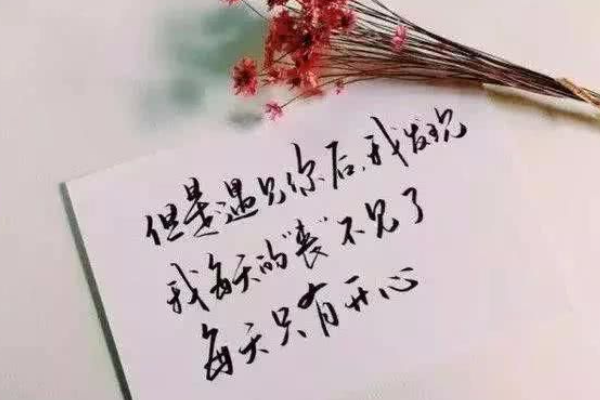 但是遇见你后，我发现
我每天的“丧”不见了
每天只有开心